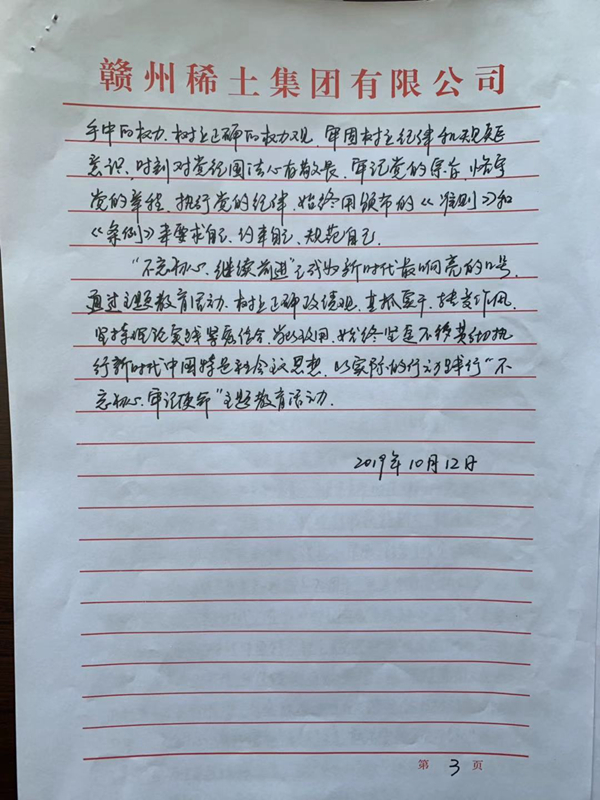 赣州稀土集团有限公司
手中的权力、树立正确的权力观，牢固树立纪律和规矩
意识，时刻对党纪国法心存敬畏，牢记党的宗旨，恪守
党的章程，执行党的纪律，始终用颁布的《准则》和
《条例》来要求自己、约束自己、规范自己。
“不忘初心、继续前进”已成为新时代最响亮的口号，
通过主题教育活动，树立正确政绩观，真抓实干，转变作风，
坚持理论实践紧密结合，学以致用，始终坚定不移贯彻执
行新时代中国特色社会主义思想，以实际的行动践行“不
忘初心、牢记使命”主题教育活动。
2019年10月12日
第 3 页